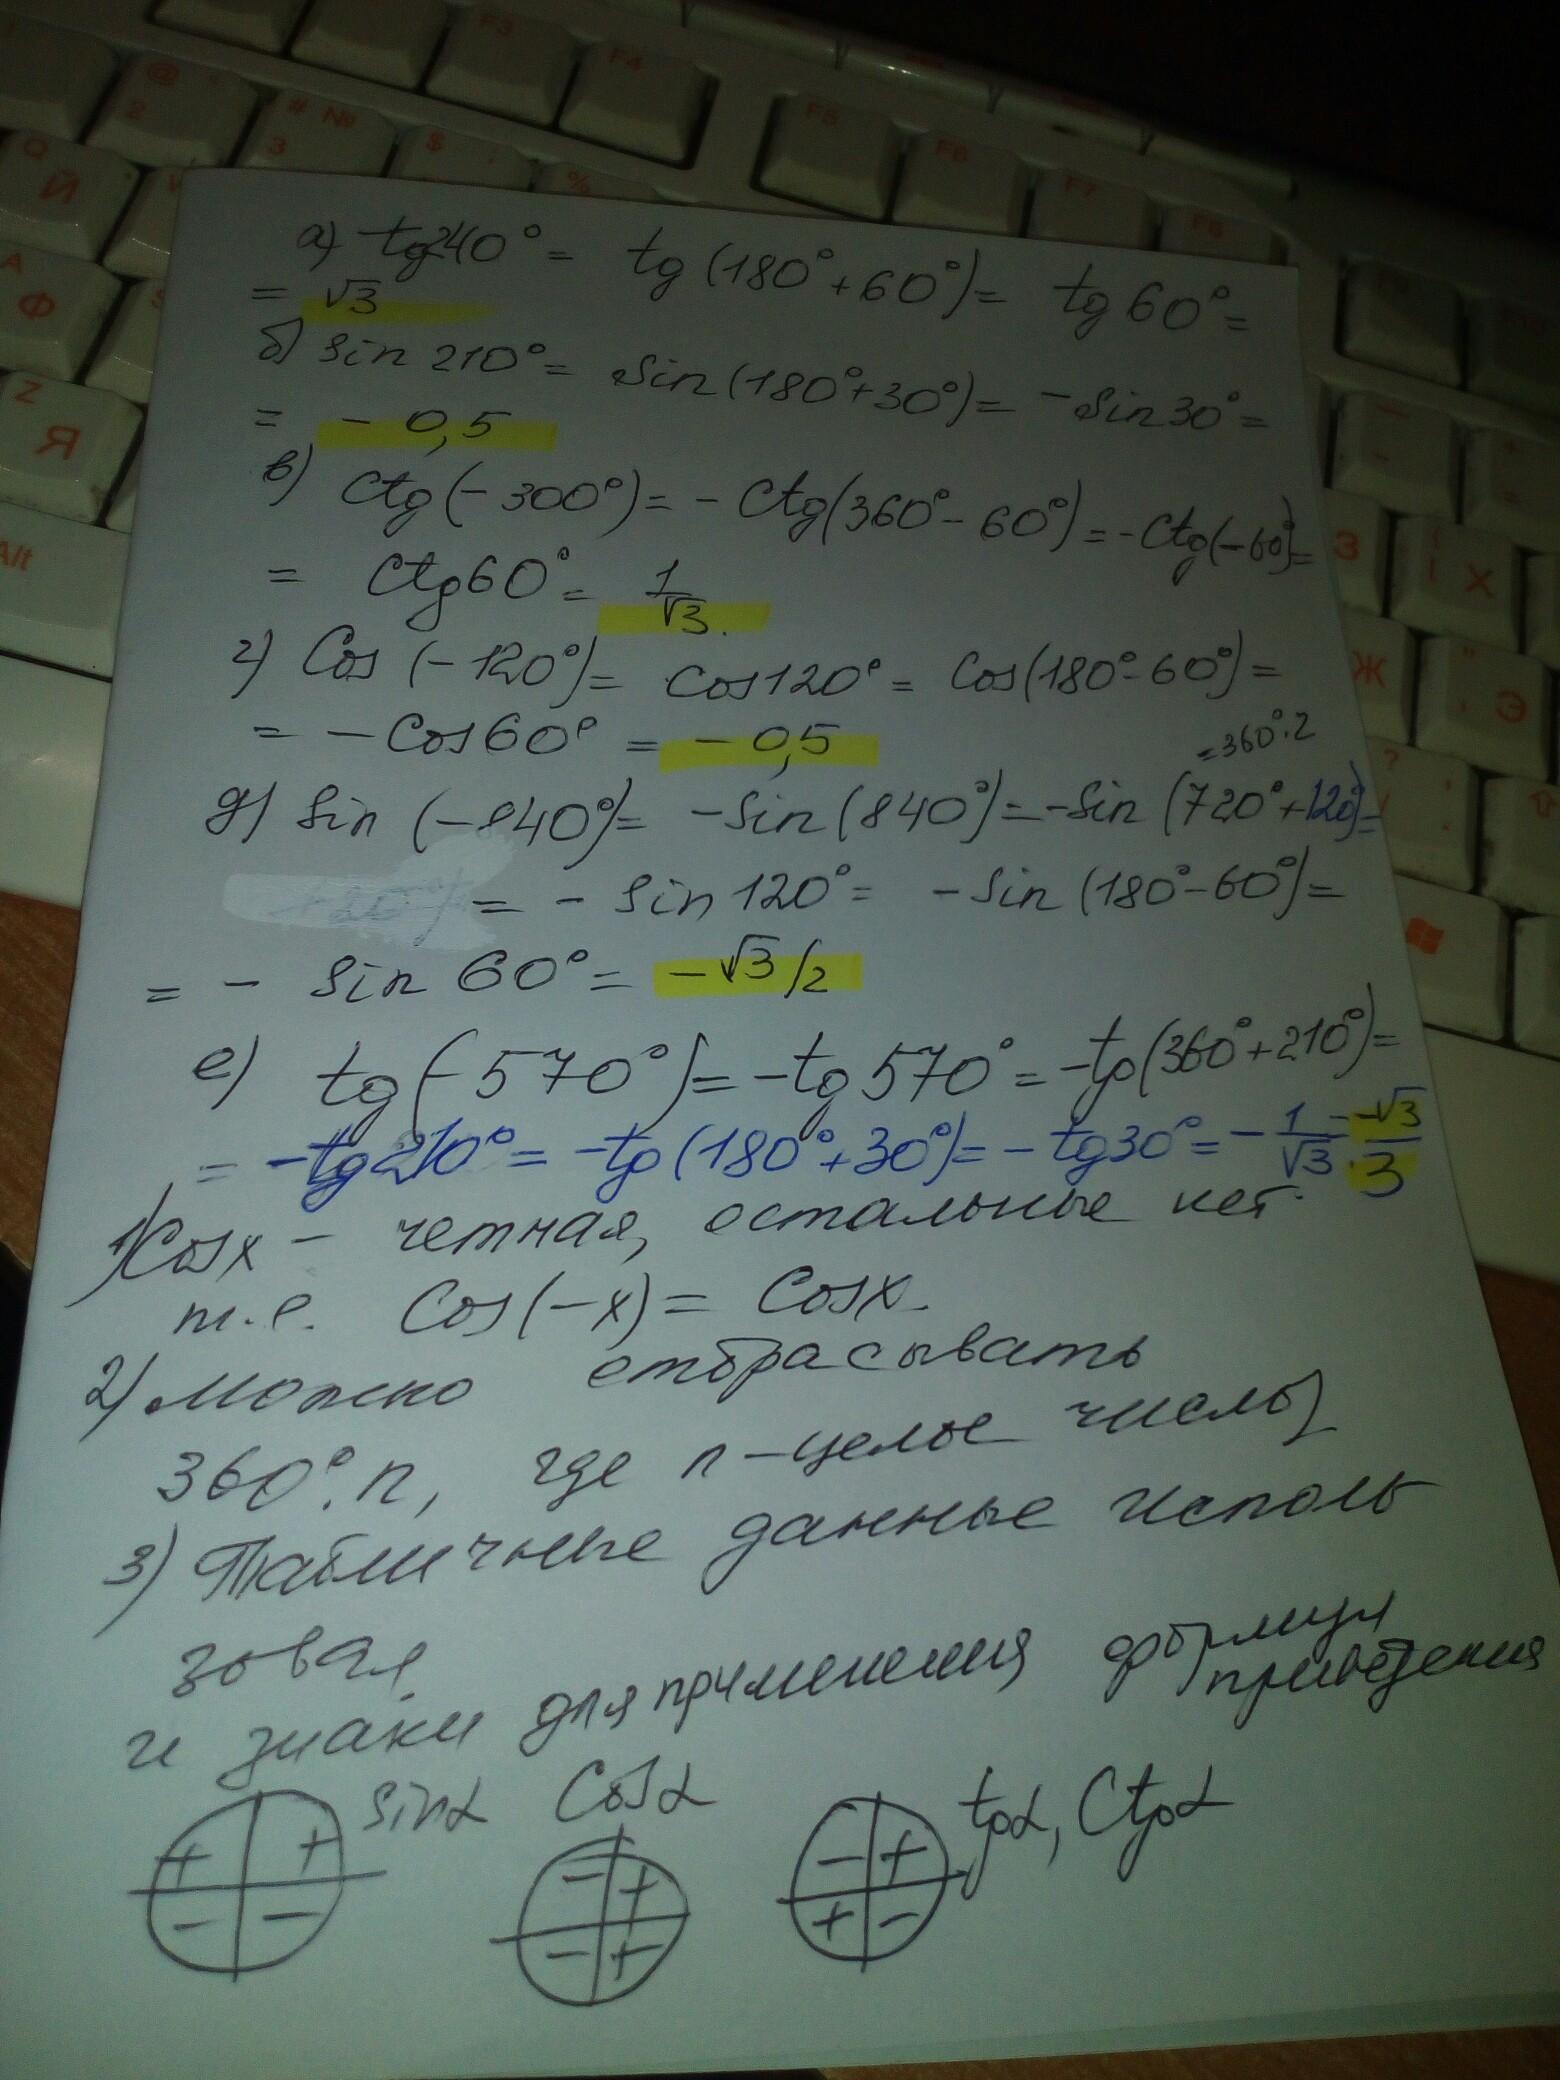 а) tg240° = tg(180°+60°) = tg60° =
= √3
б) sin 210° = sin(180°+30°) = -sin30° =
= - 0,5
в) Ctg(-300°) = - Ctg(360°-60°) = -Ctg(-60°) =
= Ctg60° = 1/√3.
г) Cos(-120°) = Cos120° = Cos(180°-60°) =
= - Cos60° = - 0,5
= 360°·2
д) Sin (-840°) = -Sin(840°) = -Sin (720°+120°) =
= - Sin 120° = -Sin (180°-60°) =
= - Sin 60° = -√3/2
е) tg(-570°) = -tg570° = -tg(360°+210°) =
= -tg210° = -tg(180°+30°) = -tg30° = -1/√3 = -√3/3
1) Cosx - четная, остальные нет.
т.е. Cos(-x) = Cosx.
2) Можно отбрасывать
360°·n, где n-целые числы
3) Табличные данные исполь
зовал
и знаки для применения формул
приведения
sinα Cosα tgα, Ctgα
+ + - + - +
- - - + + -
F3
F4
F5
F6
F7
F8
@ 2
# № 3
$ ;
%
Q Й
A Ф
Z Я
Alt
З
{ [ Х
Ж
" ' Э
? /